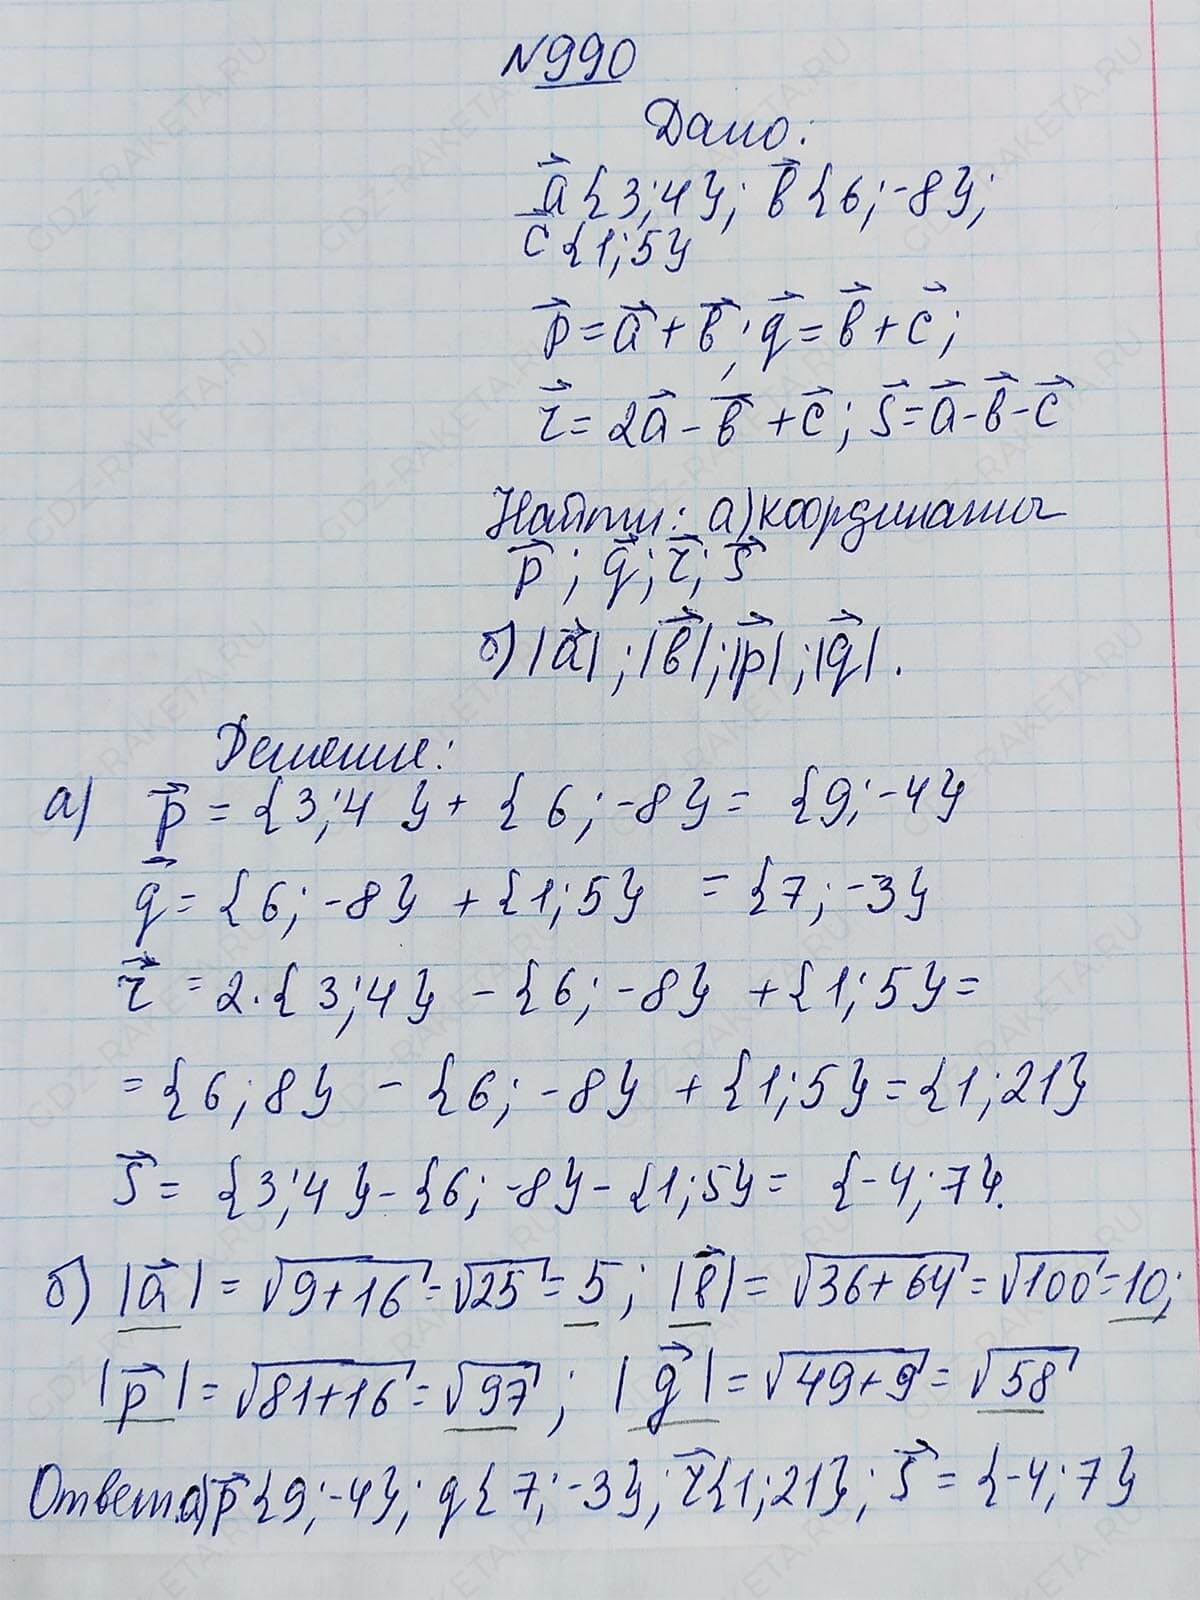 №990
Дано:
a⃗{3;4}; b⃗{6;-8};
c⃗{1;5}
p⃗=a⃗+b⃗; q⃗=b⃗+c⃗;
r⃗=2a⃗-b⃗+c⃗; s⃗=a⃗-b⃗-c⃗
Найти: а) координаты
p⃗; q⃗; r⃗; s⃗
б) |a⃗|; |b⃗|; |p⃗|; |q⃗|.
Решение:
а) p⃗ = {3;4} + {6;-8} = {9;-4}
q⃗ = {6;-8} + {1;5} = {7;-3}
r⃗ = 2·{3;4} - {6;-8} + {1;5} =
= {6;8} - {6;-8} + {1;5} = {1;21}
s⃗ = {3;4} - {6;-8} - {1;5} = {-4;7}.
б) |a⃗| = √9+16 = √25 = 5; |b⃗| = √36+64 = √100 = 10;
|p⃗| = √81+16 = √97; |q⃗| = √49+9 = √58
Ответ: а) p⃗{9;-4}; q{7;-3}; r⃗{1;21}; s⃗ = {-4;7}
GDZ-RAKETA.RU